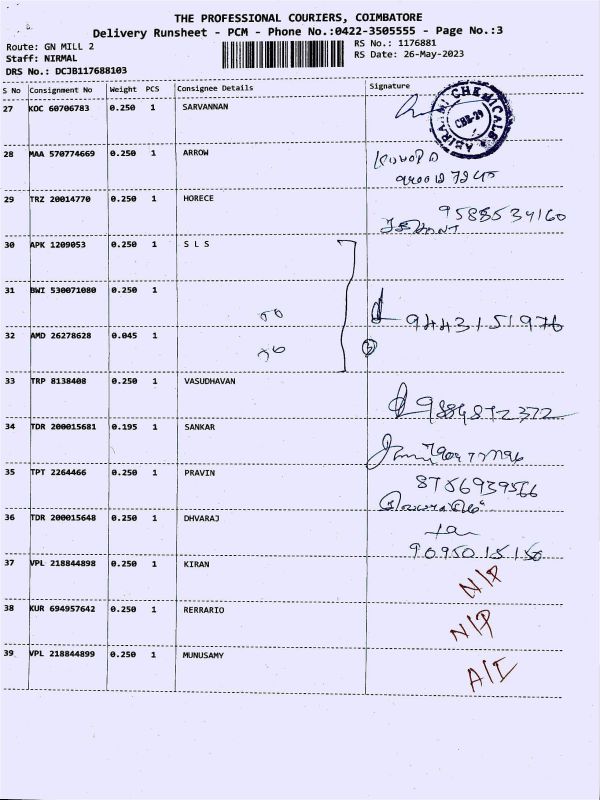 THE PROFESSIONAL COURIERS, COIMBATORE
Delivery Runsheet - PCM - Phone No.:0422-3505555 - Page No.:3
Route: GN MILL 2
RS No.: 1176881
Staff: NIRMAL
RS Date: 26-May-2023
DRS No.: DCJB117688103
S No Consignment No Weight PCS Consignee Details Signature
27 KOC 60706783 0.250 1 SARVANNAN
ABIRAMI CHEMICALS
CBE-29
28 MAA 570774669 0.250 1 ARROW
29 TRZ 20014770 0.250 1 HORECE
9585534160
30 APK 1209053 0.250 1 S L S
31 BWI 530071080 0.250 1
9443151976
32 AMD 26278628 0.045 1
3
33 TRP 8138408 0.250 1 VASUDHAVAN
9884872372
34 TDR 200015681 0.195 1 SANKAR
35 TPT 2264466 0.250 1 PRAVIN
8756939566
36 TDR 200015648 0.250 1 DHVARAJ
9095015150
37 VPL 218844898 0.250 1 KIRAN
N/P
38 KUR 694957642 0.250 1 RERRARIO
N/P
39 VPL 218844899 0.250 1 MUNUSAMY
A/I